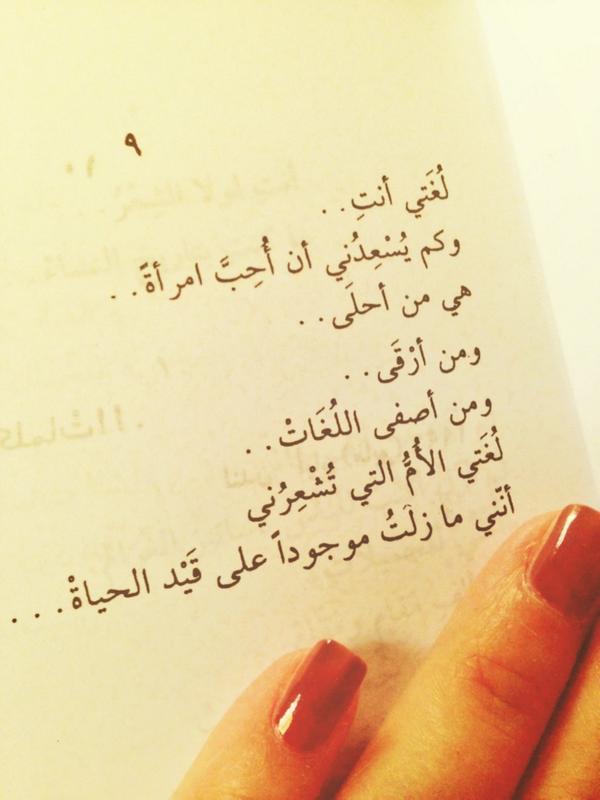 ٩
لُغَتي أنتِ..
وكم يُسْعِدُني أن أُحِبَّ امرأةً..
هي من أحلَى..
ومن أرْقَى..
ومن أصفى اللُغَاتْ..
لُغَتي الأُمُّ التي تُشْعِرُني
أنّني ما زلْتُ موجوداً على قَيْد الحياةْ...